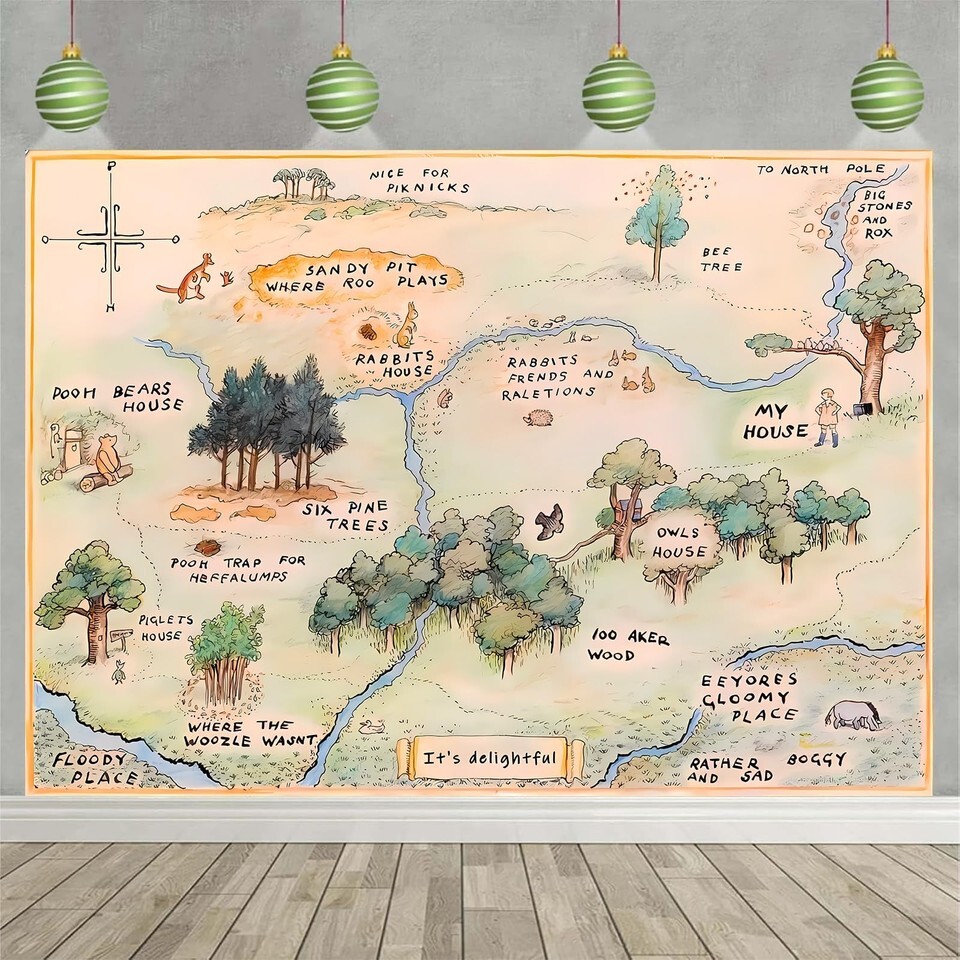 P
O
O
H
NICE FOR
PIKNICKS
TO NORTH POLE
BIG
STONES
AND
ROX
BEE
TREE
SANDY PIT
WHERE ROO PLAYS
RABBITS
HOUSE
RABBITS
FRENDS AND
RALETIONS
POOH BEARS
HOUSE
MY
HOUSE
SIX PINE
TREES
OWLS
HOUSE
POOH TRAP FOR
HEFFALUMPS
PIGLETS
HOUSE
100 AKER
WOOD
WHERE THE
WOOZLE WASNT
EEYORES
GLOOMY
PLACE
FLOODY
PLACE
It's delightful
RATHER BOGGY
AND SAD